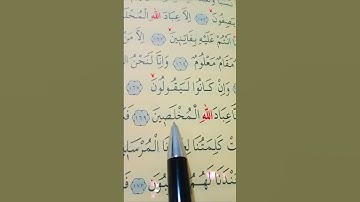 يَصِفُونَ ﴿١٥٩﴾ اِلَّا عِبَادَ اللّٰهِ الْمُخْلَ
اَنْتُمْ عَلَيْهِ بِفَاتِنٖينَ ﴿١٦٢﴾ اِلَّا مَنْ
مَقَامٌ مَعْلُومٌ ﴿١٦٤﴾ وَاِنَّا لَنَحْنُ
وَاِنْ كَانُوا لَيَقُولُونَ ﴿١٦٧﴾
عِبَادَ اللّٰهِ الْمُخْلَصٖينَ ﴿١٦٩﴾ فَكَ
تْ كَلِمَتُنَا الْمُرْسَلٖ
نْدَنَا لَهُمُ ﴿١٧٣﴾ فَ